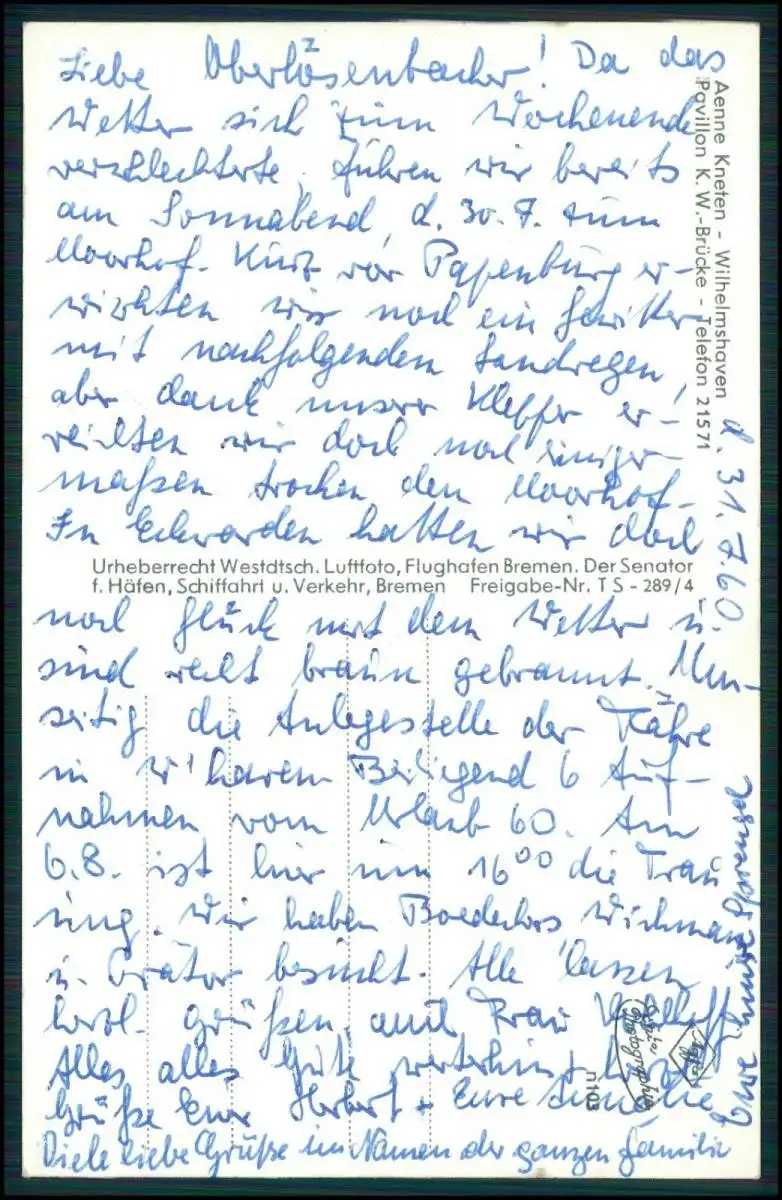 Liebe Oberlösenbacher! Da das
Wetter sich zum Wochenende
verschlechterte, fuhren wir bereits
am Sonnabend, d. 30.7. zum
Moorhof. Kurz vor Papenburg er-
wischten wir noch ein Gewitter
mit nachfolgendem Landregen,
aber dank unserer Klepper er-
reichten wir doch noch einiger-
maßen trocken den Moorhof.
In Eckwarden hatten wir doch
noch Glück mit dem Wetter u.
sind recht braun gebrannt. Um-
seitig die Anlegestelle der Fähre
in W'haven. Beiliegend 6 Auf-
nahmen vom Urlaub 60. Am
6.8. ist hier um 16⁰⁰ die Trau
ung. Wir haben
u. besucht. Alle lassen
herzl. grüßen, auch Frau
Alles alles Gute weiterhin +
Grüße Euer Herbert + Eure
Viele liebe Grüße im Namen der ganzen Familie
d. 31.7.60
Eure
Aenne Kneten - Wilhelmshaven
Pavillon K. W.-Brücke - Telefon 21571
Urheberrecht Westdtsch. Luftfoto, Flughafen Bremen. Der Senator
f. Häfen, Schiffahrt u. Verkehr, Bremen Freigabe-Nr. T S - 289/4
n103